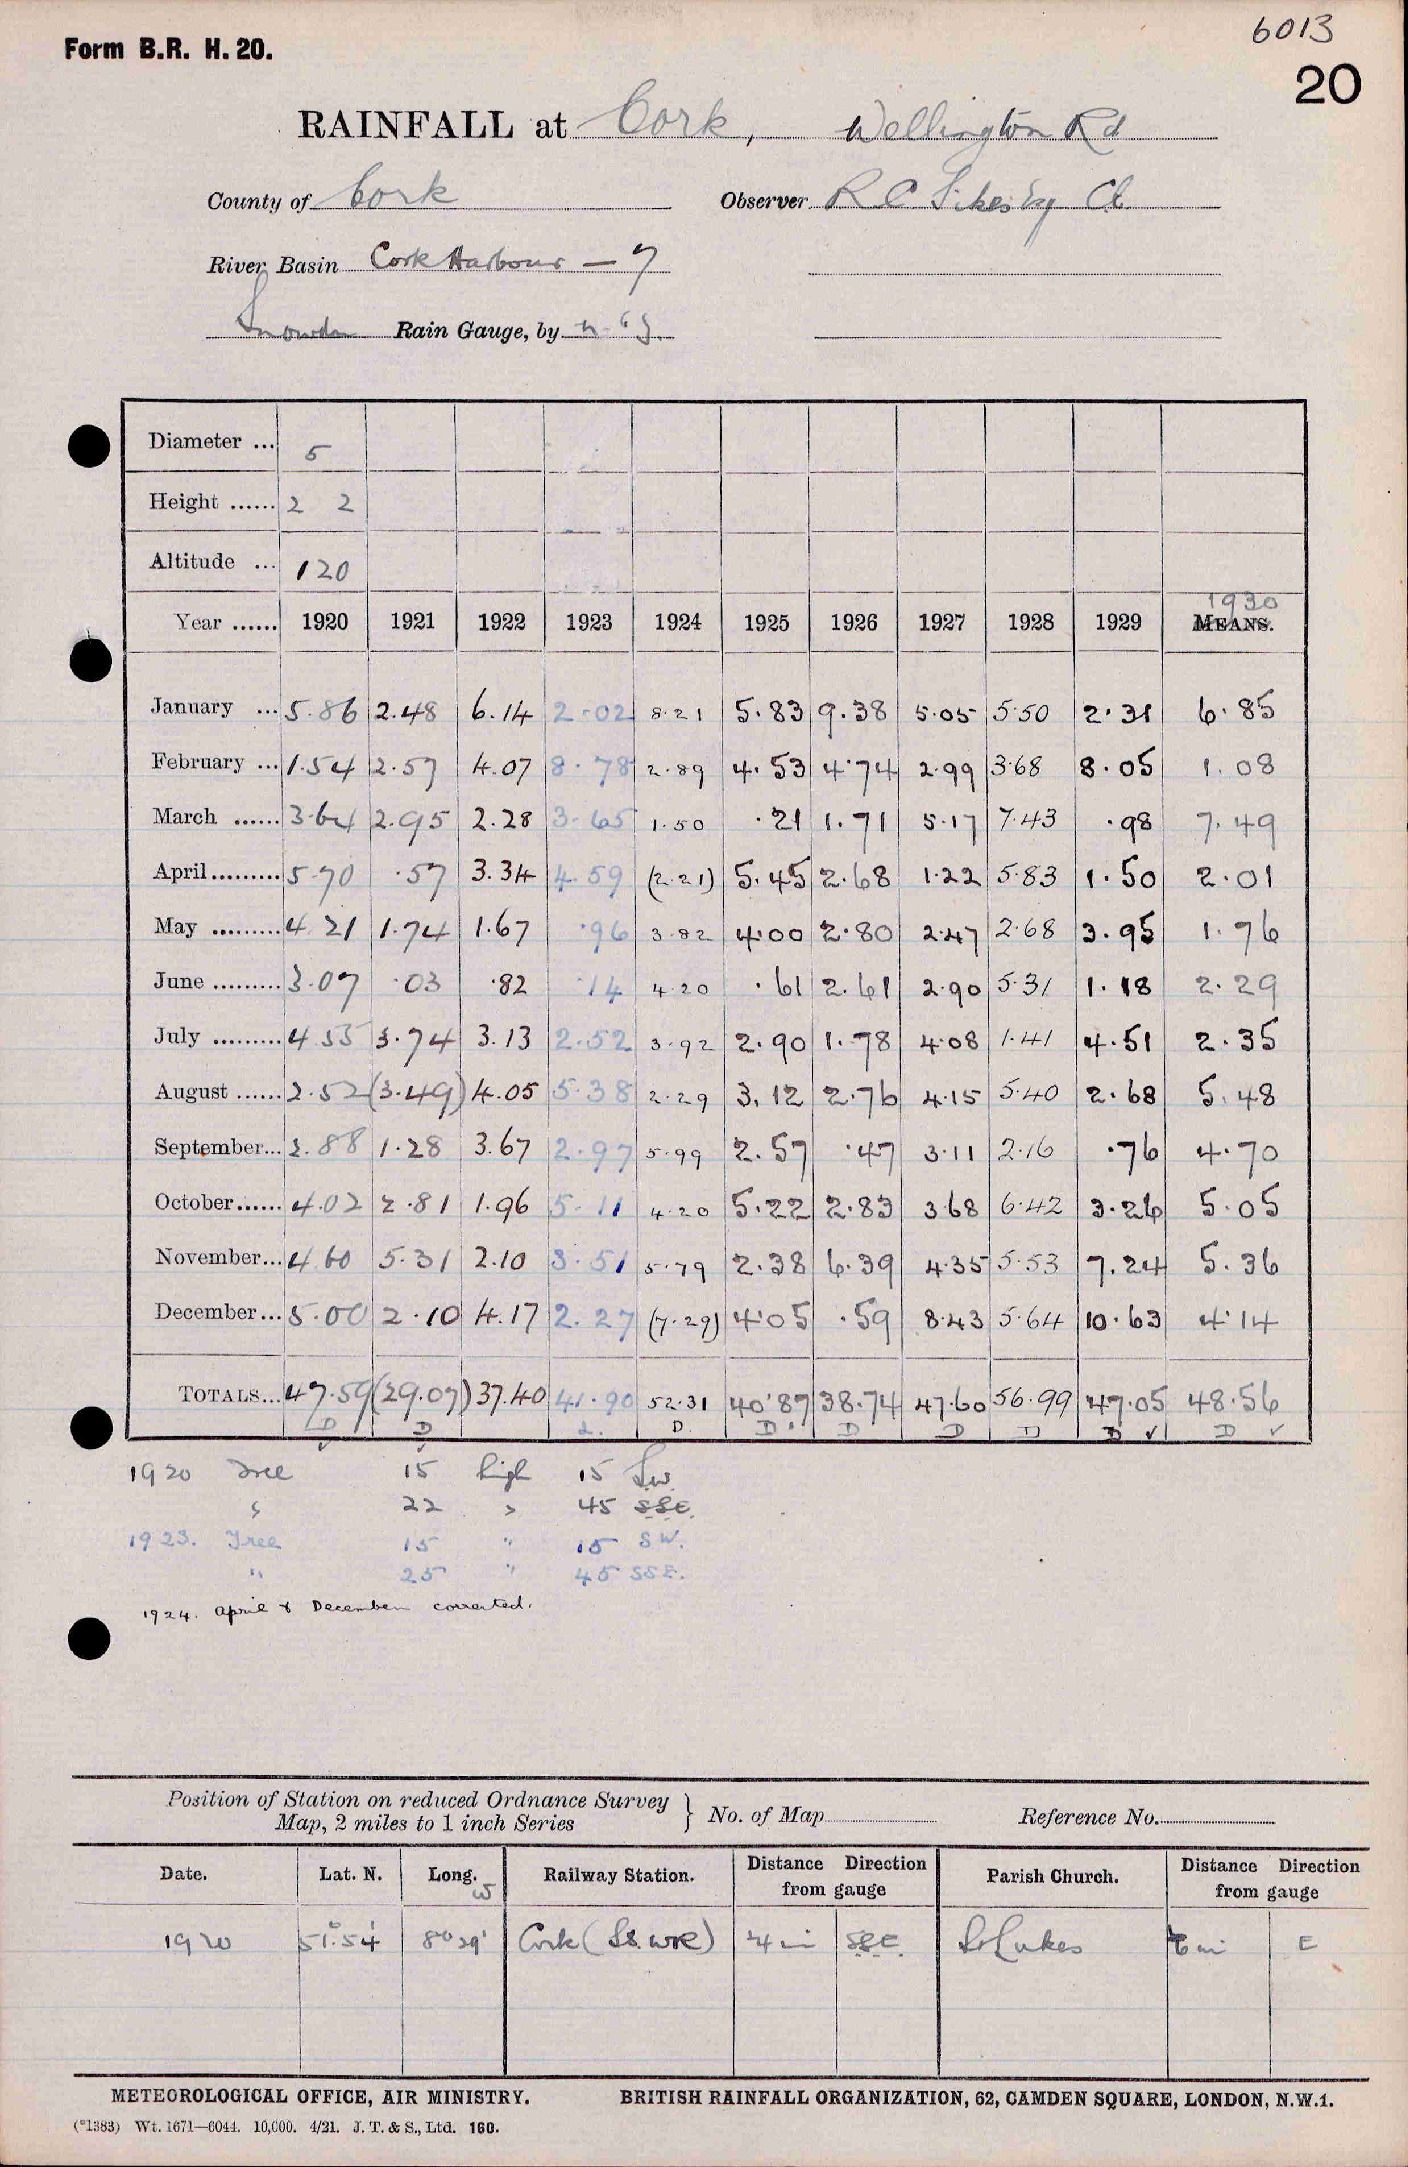 6013
Form B.R. H. 20.
20
RAINFALL at Cork, Wellington Rd
County of Cork Observer R C Sikes Esq
River Basin Cork Harbour — 7
Snowdon Rain Gauge, by
Diameter ... 5
Height ...... 2 2
Altitude ... 120
1930
Year ...... 1920 1921 1922 1923 1924 1925 1926 1927 1928 1929 MEANS.
January ... 5.86 2.48 6.14 2.02 8.21 5.83 9.38 5.05 5.50 2.31 6.85
February ... 1.54 2.57 4.07 8.78 2.89 4.53 4.74 2.99 3.68 8.05 1.08
March ...... 3.64 2.95 2.28 3.65 1.50 .21 1.71 5.17 7.43 .98 7.49
April......... 5.70 .57 3.34 4.59 (2.21) 5.45 2.68 1.22 5.83 1.50 2.01
May ......... 4.21 1.74 1.67 .96 3.82 4.00 2.80 2.47 2.68 3.95 1.76
June ......... 3.07 .03 .82 .14 4.20 .61 2.61 2.90 5.31 1.18 2.29
July ......... 4.55 3.74 3.13 2.52 3.92 2.90 1.78 4.08 1.41 4.51 2.35
August ...... 2.52 (3.49) 4.05 5.38 2.29 3.12 2.76 4.15 5.40 2.68 5.48
September... 2.88 1.28 3.67 2.97 5.99 2.57 .47 3.11 2.16 .76 4.70
October...... 4.02 2.81 1.96 5.11 4.20 5.22 2.83 3.68 6.42 3.26 5.05
November... 4.60 5.31 2.10 3.51 5.79 2.38 6.39 4.35 5.53 7.24 5.36
December... 5.00 2.10 4.17 2.27 (7.29) 4.05 .59 8.43 5.64 10.63 4.14
TOTALS... 47.59 (29.07) 37.40 41.90 52.31 40.87 38.74 47.60 56.99 47.05 48.56
D D D. D. D D D D ✓ D ✓
1920 Tree 15 high 15 S.W.
" 22 " 45 SSE.
1923. Tree 15 " 15 SW.
" 25 " 45 SSE.
1924. April & December corrected.
Position of Station on reduced Ordnance Survey
Map, 2 miles to 1 inch Series } No. of Map Reference No.
Date. Lat. N. Long. W Railway Station. Distance Direction from gauge Parish Church. Distance Direction from gauge
1920 51°54' 8°29' Cork SSE St Lukes E
METEOROLOGICAL OFFICE, AIR MINISTRY. BRITISH RAINFALL ORGANIZATION, 62, CAMDEN SQUARE, LONDON, N.W.1.
(*1383) Wt. 1671—6044. 10,000. 4/21. J. T. & S., Ltd. 160.